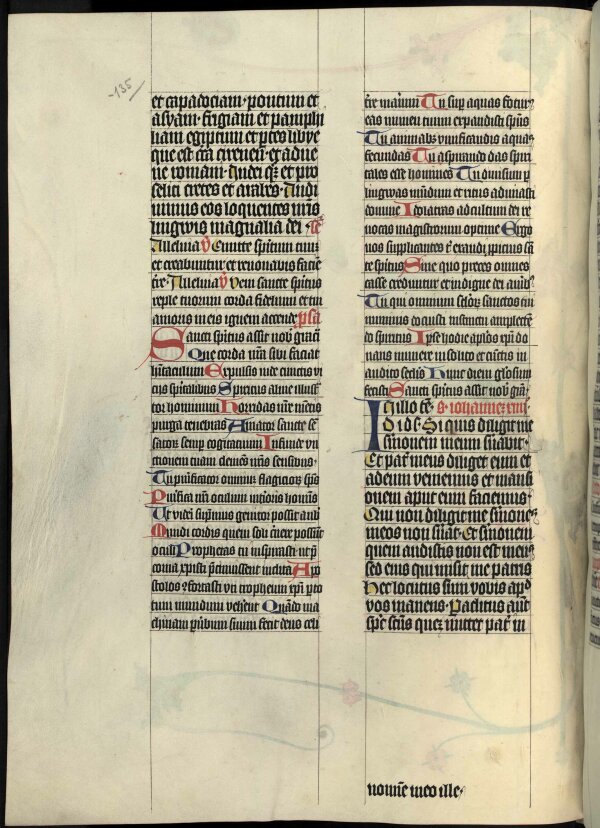 135
et capadociam · pontum et
asyam · frigiam et pamphi
liam egiptum et ptes libye
que est circa cirenen · et adue
ne romani · Iudei qz et pro
seliti cretes et arabes · Audi
uimus eos loquentes nris
linguis magnalia dei ·
Alleluia v Emitte spiritum tuum
et creabuntur et renouabis faciem
tre · Alleluia v Veni sancte spiritus
reple tuorum corda fidelium et tui
amoris in eis ignem accende
Sancti spiritus assit nobis gracia
Que corda nra sibi faciat
habitaculum Expulsis inde cunctis vi
ciis spiritalibus Spiritus alme illustra
tor hominum Horridas nre mentis
purga tenebras Amator sancte sen
satorum semper cogitatuum Infunde vn
ctionem tuam clemens nris sensibus ·
Tu purificator omnium flagiciorum spiritus
Purifica nri oculum interioris hominis
Ut videri supremus genitor possit a nobis
Mundi cordis quem soli cernere possunt
oculi Prophetas tu inspirasti ut pre
conia xpisti precinuissent inclita Apo
stolos confortasti uti tropheum xpi p to
tum mundum veherent Quando ma
chinam p verbum suum fecit deus celi
tre marium Tu super aquas foturus
eas numen tuum expandisti spiritus
Tu animabus viuificandis aquas
fecundas Tu aspirando das spiri
tales esse homines Tu diuisum p
linguas mundum et ritus adunasti
domine Idolatras ad cultum dei re
uocas magistrorum optime Ergo
nos supplicantes tibi exaudi propicius san
cte spiritus Sine quo preces omnes
casse creduntur et indigne dei auribus
Tu qui omnium seculorum sanctos tui
numinis docuisti instinctu amplecten
do spiritus Ipse hodie aplos xpi do
nans munere insolito et cunctis in
audito seclis Hunc diem gloriosum
fecisti Sancti spiritus assit nobis gra
In illo tpe · s iohannem xiiii
Dixit ihs · Siquis diligit me
sermonem meum seruabit ·
Et pater meus diliget eum et
ad eum veniemus et mansi
onem aput eum faciemus ·
Qui non diligit me sermones
meos non seruat · Et sermonem
quem audistis non est meus
sed eius qui misit me patris
Hec locutus sum vobis apud
vos manens · Paclitus aut
spc scus quez mittet pater in
nomine meo ille ·